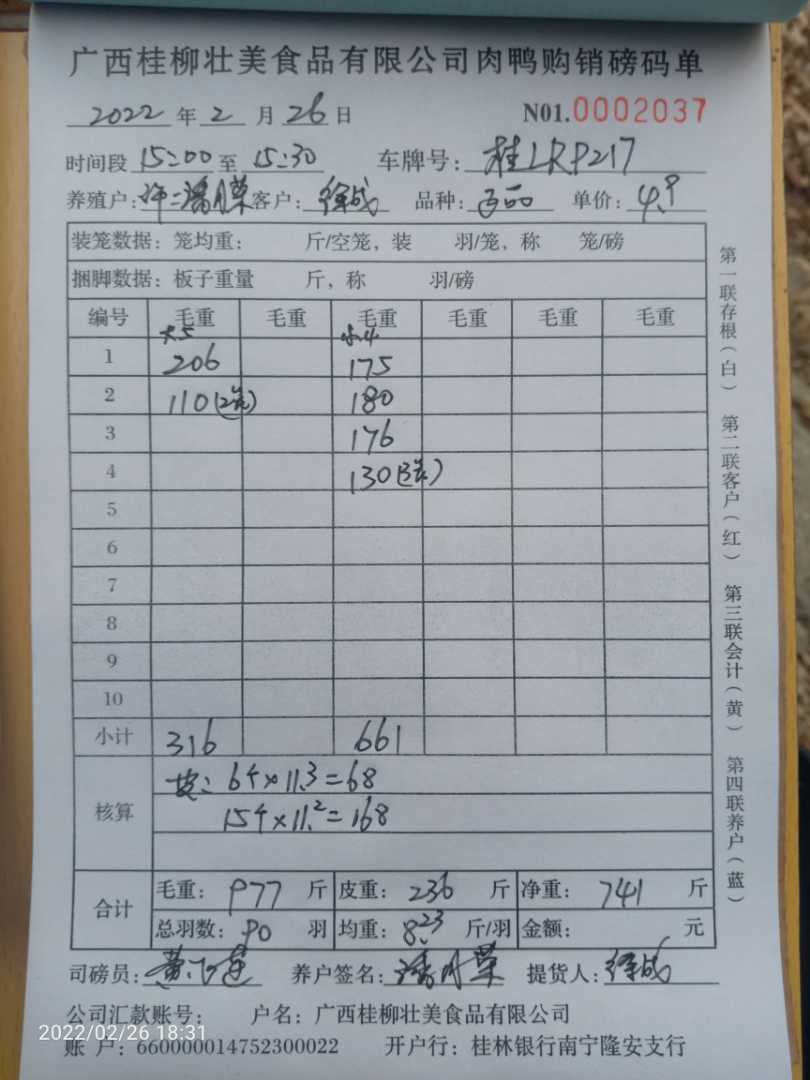 广西桂柳壮美食品有限公司肉鸭购销磅码单
2022 年 2 月 26 日 N01.0002037
时间段 15:00 至 15:30 车牌号: 桂LRP217
养殖户: 许二潘月荣 客户: 徐成 品种: 单价: 4.9
装笼数据: 笼均重: 斤/空笼, 装 羽/笼, 称 笼/磅
捆脚数据: 板子重量 斤, 称 羽/磅
编号 毛重 毛重 毛重 毛重 毛重 毛重
大5 小4
1 206 175
2 110(2笼) 180
3 176
4 130(3笼)
5
6
7
8
9
10
小计 316 661
核算 皮: 6个×11.3=68
15个×11.2=168
合计 毛重: 977 斤 皮重: 236 斤 净重: 741 斤
总羽数: 90 羽 均重: 8.23 斤/羽 金额: 元
司磅员: 养户签名: 潘月荣 提货人: 徐成
公司汇款账号: 户名: 广西桂柳壮美食品有限公司
账 户: 660000014752300022 开户行: 桂林银行南宁隆安支行
第一联存根(白) 第二联客户(红) 第三联会计(黄) 第四联养户(蓝)
2022/02/26 18:31